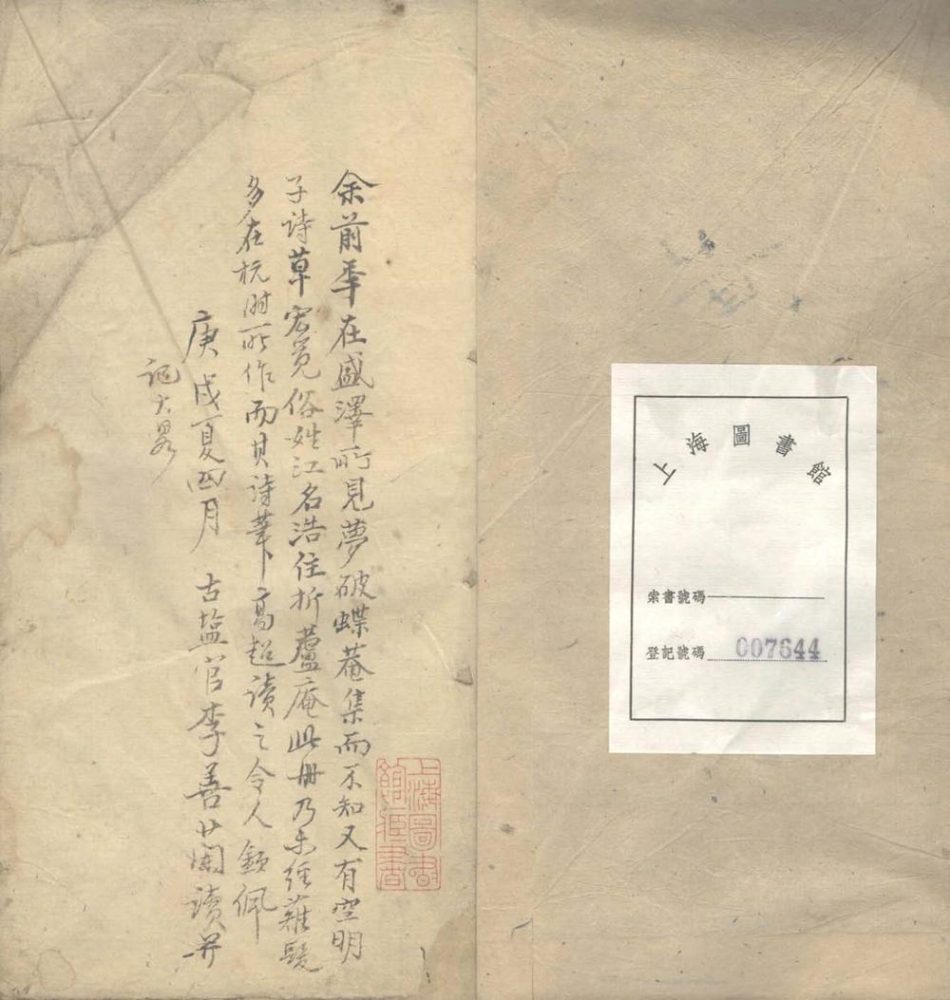 余前年在盛澤所見夢破蝶菴集而不知又有空明
子詩草宏覓俗姓江名浩住折蘆庵此冊乃未經薙髮
多在杭時所作而其詩筆高超讀之令人欽佩
庚戌夏四月 古盐官李善蘭讀并
記大畧
上海圖書館藏書
上海圖書館
索書號碼
登記號碼 007644